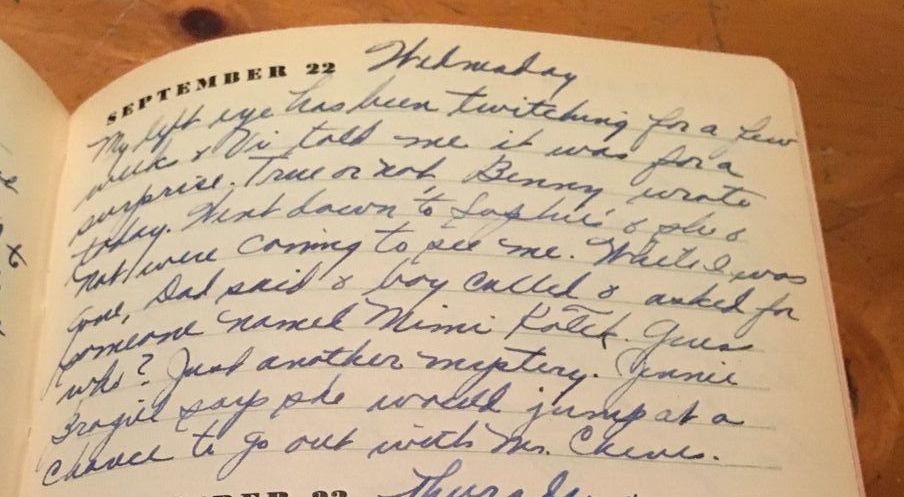 SEPTEMBER 22 Wednesday
My left eye has been twitching for a few
weeks & Vi told me it was for a
surprise. True or not Benny wrote
today. Went down to Sophie's & she &
Nat were coming to see me. While I was
gone, Dad said a boy called & asked for
someone named Mimi Kotek. Guess
who? Just another mystery. Jennie
says she would jump at a
chance to go out with Mr.
Thursday